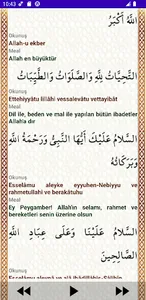 10:43
اللَّهُ أَكْبَرُ
Okunuş
Allah-u ekber
Meal
Allah en büyüktür
التَّحِيَّاتُ لِلَّهِ وَالصَّلَوَاتُ وَالطَّيِّبَاتُ
Okunuş
Ettehiyyâtu lillâhi vessalevâtu vettayibât
Meal
Dil ile, beden ve mal ile yapılan bütün ibadetler
Allah'a dır
السَّلَامُ عَلَيْكَ أَيُّهَا النَّبِيُّ وَرَحْمَةُ اللَّهِ
وَبَرَكَاتُهُ
Okunuş
Esselâmu aleyke eyyuhen-Nebiyyu ve
rahmetullahi ve berakâtuhu
Meal
Ey Peygamber! Allah'ın selamı, rahmet ve
bereketleri senin üzerine olsun
السَّلَامُ عَلَيْنَا وَعَلَى عِبَادِ اللَّهِ
الصَّالِحِينَ
Okunuş